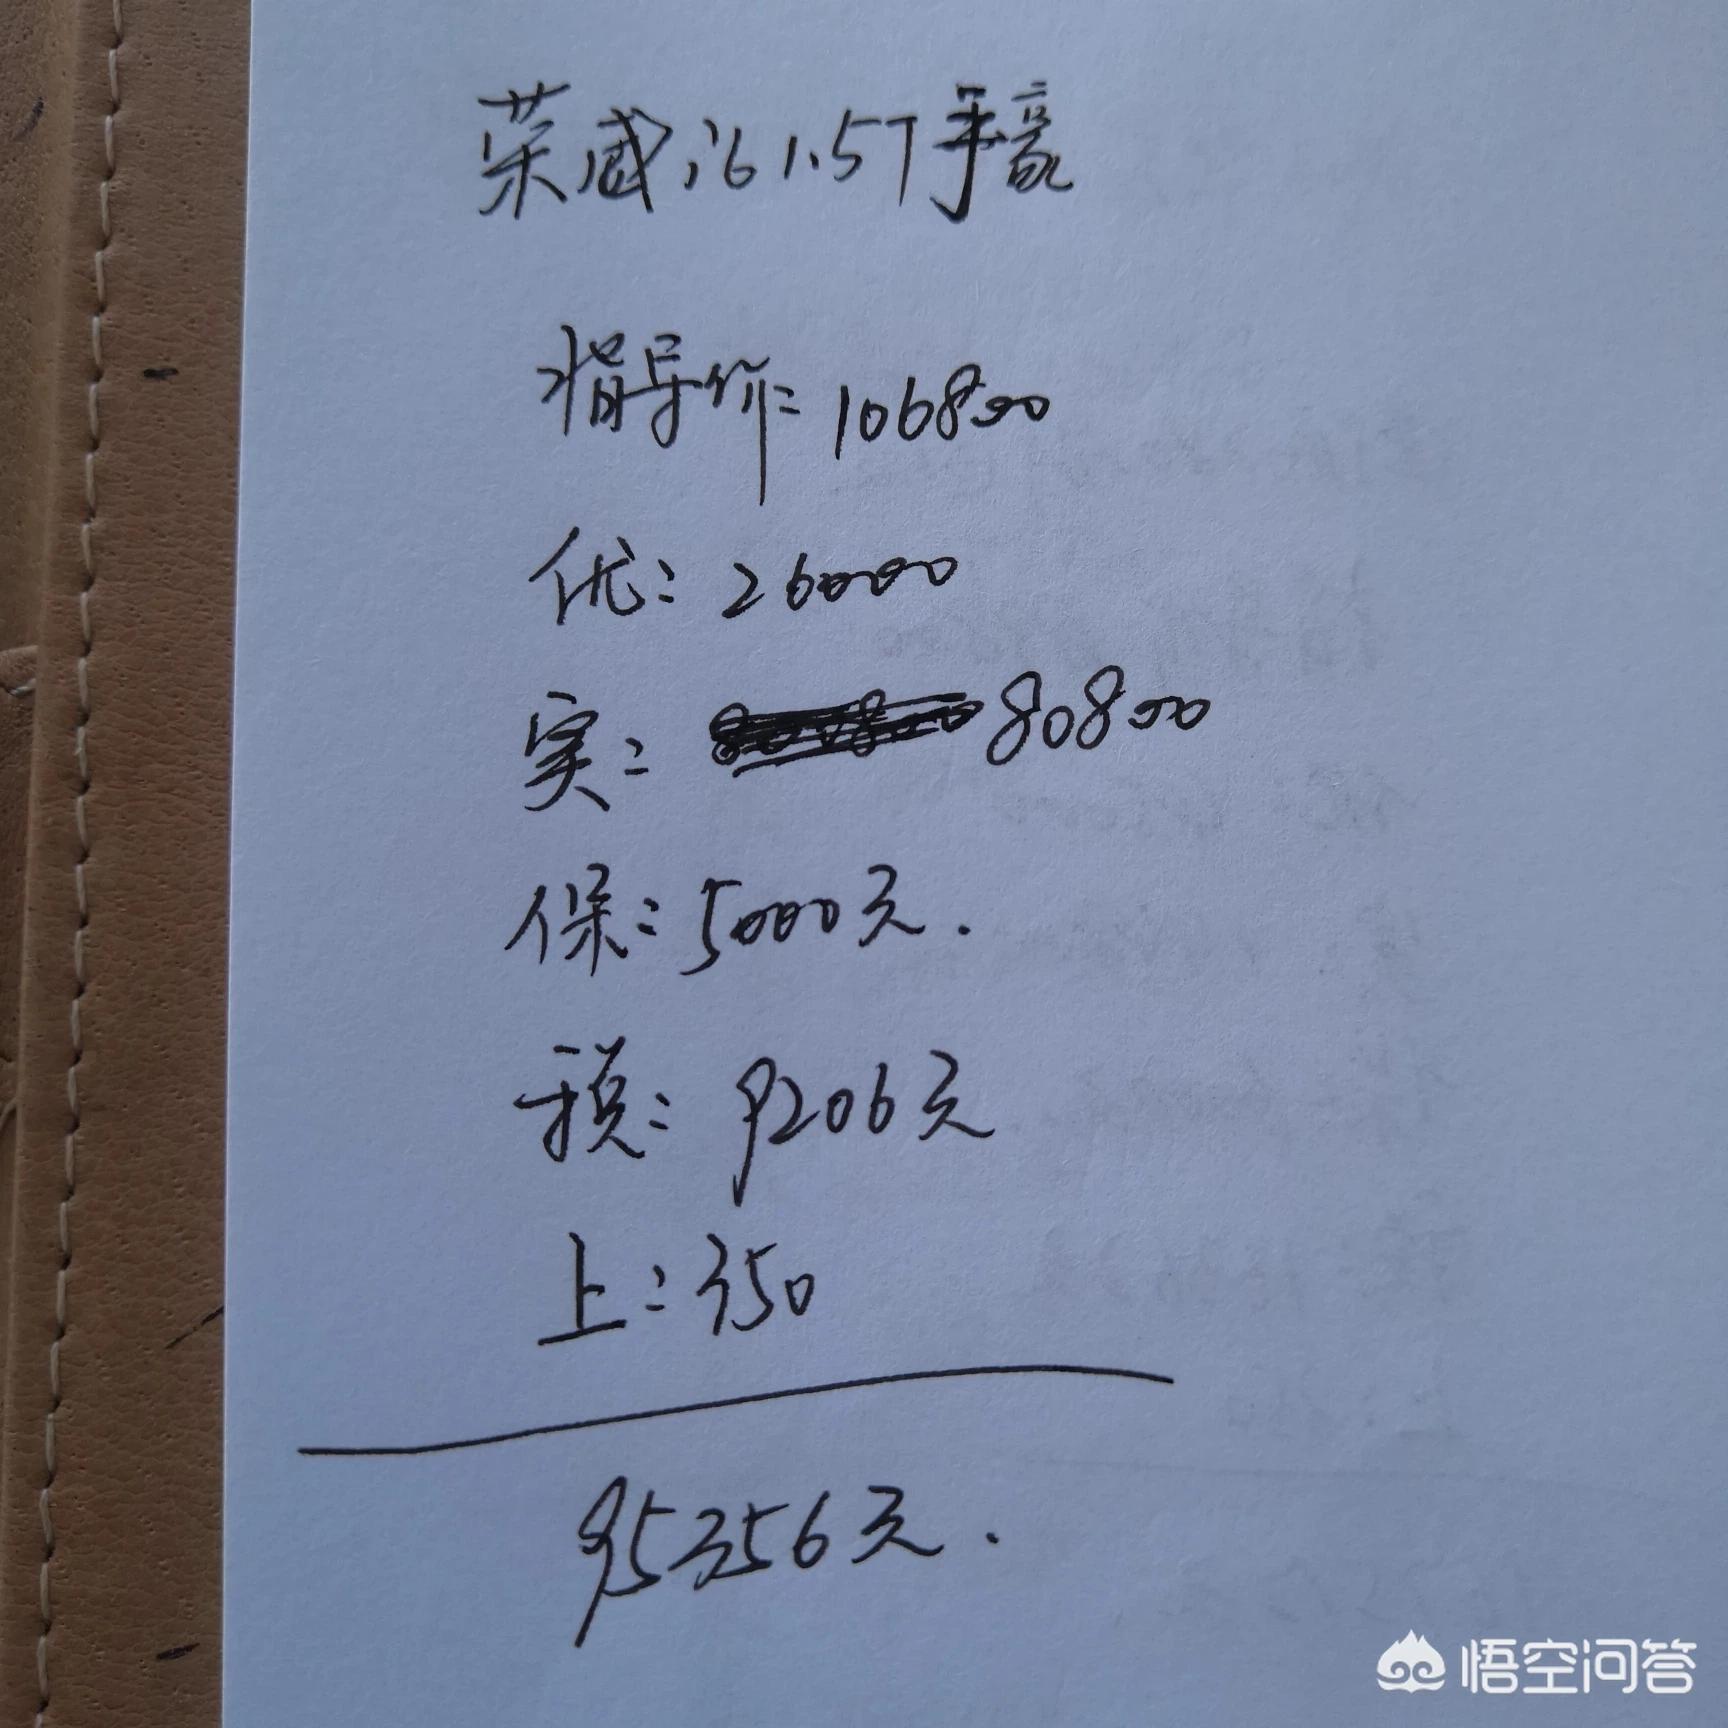 荣威i6 1.5T手豪
指导价:106800
优:26000
实: 80800
保:5000元.
税:9206元
上:350
95356元.
悟空问答